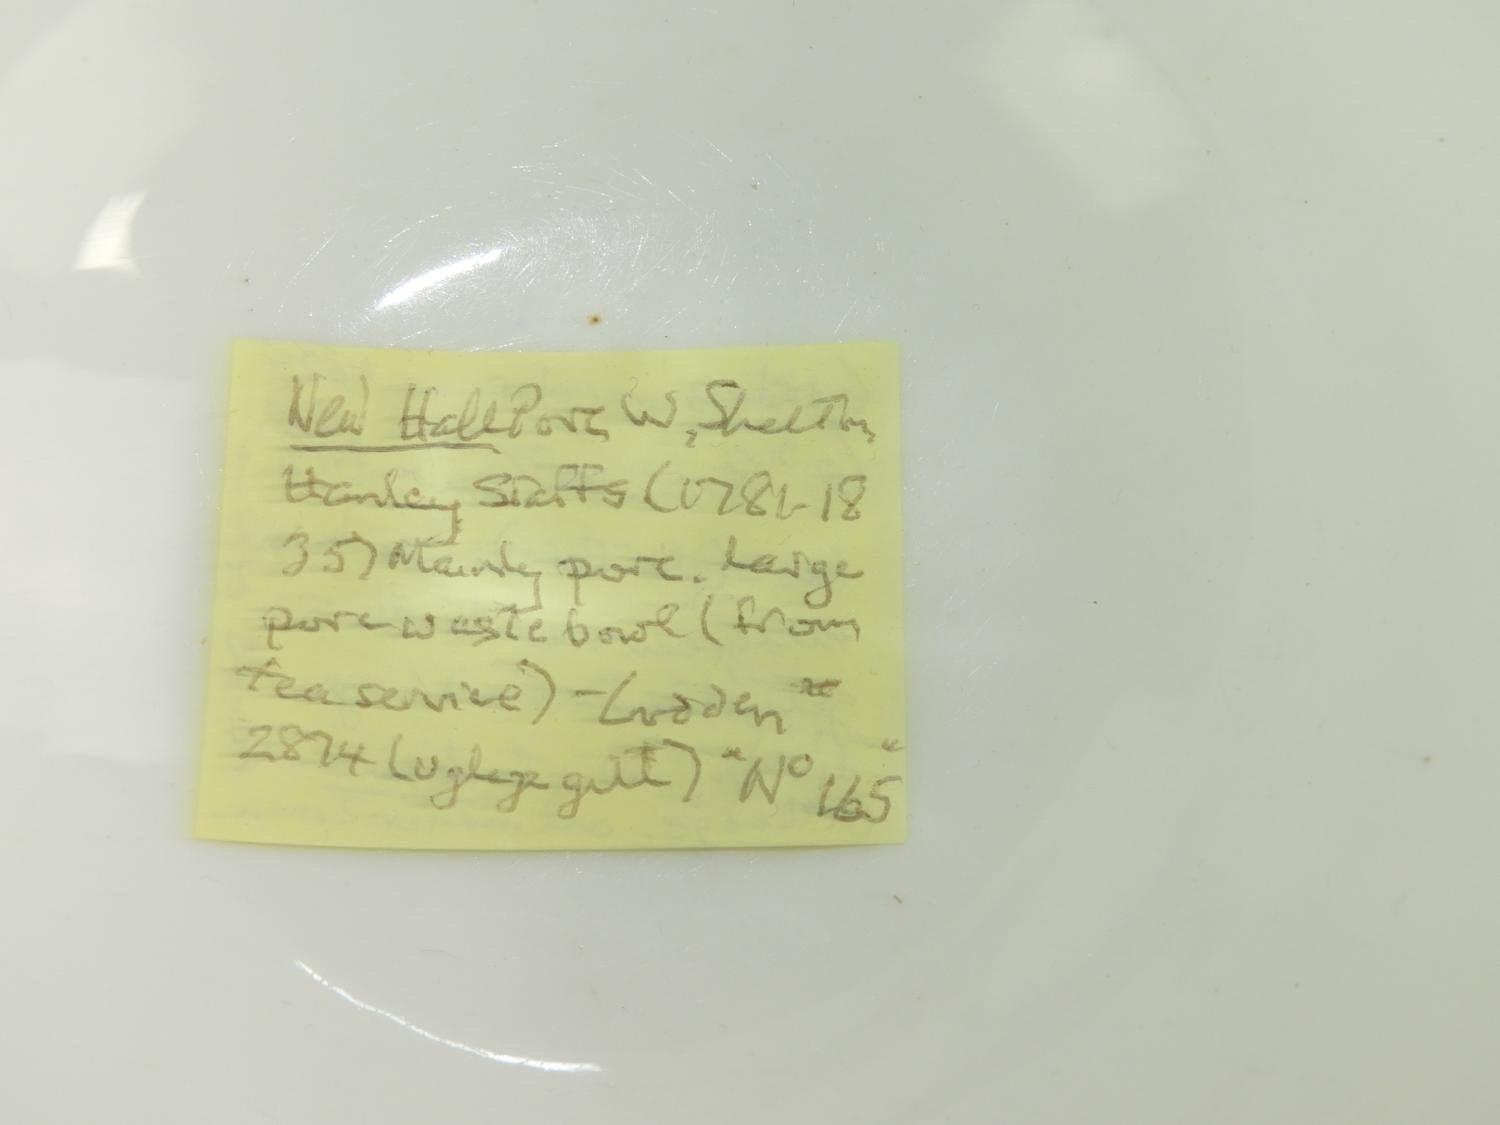 New Hall Porc W, Shelton,
Hanley, Staffs (1781-18
35) Mainly porc. Large
porc waste bowl (from
tea service) - Godden
2874 (uglaze gilt) "No 165"